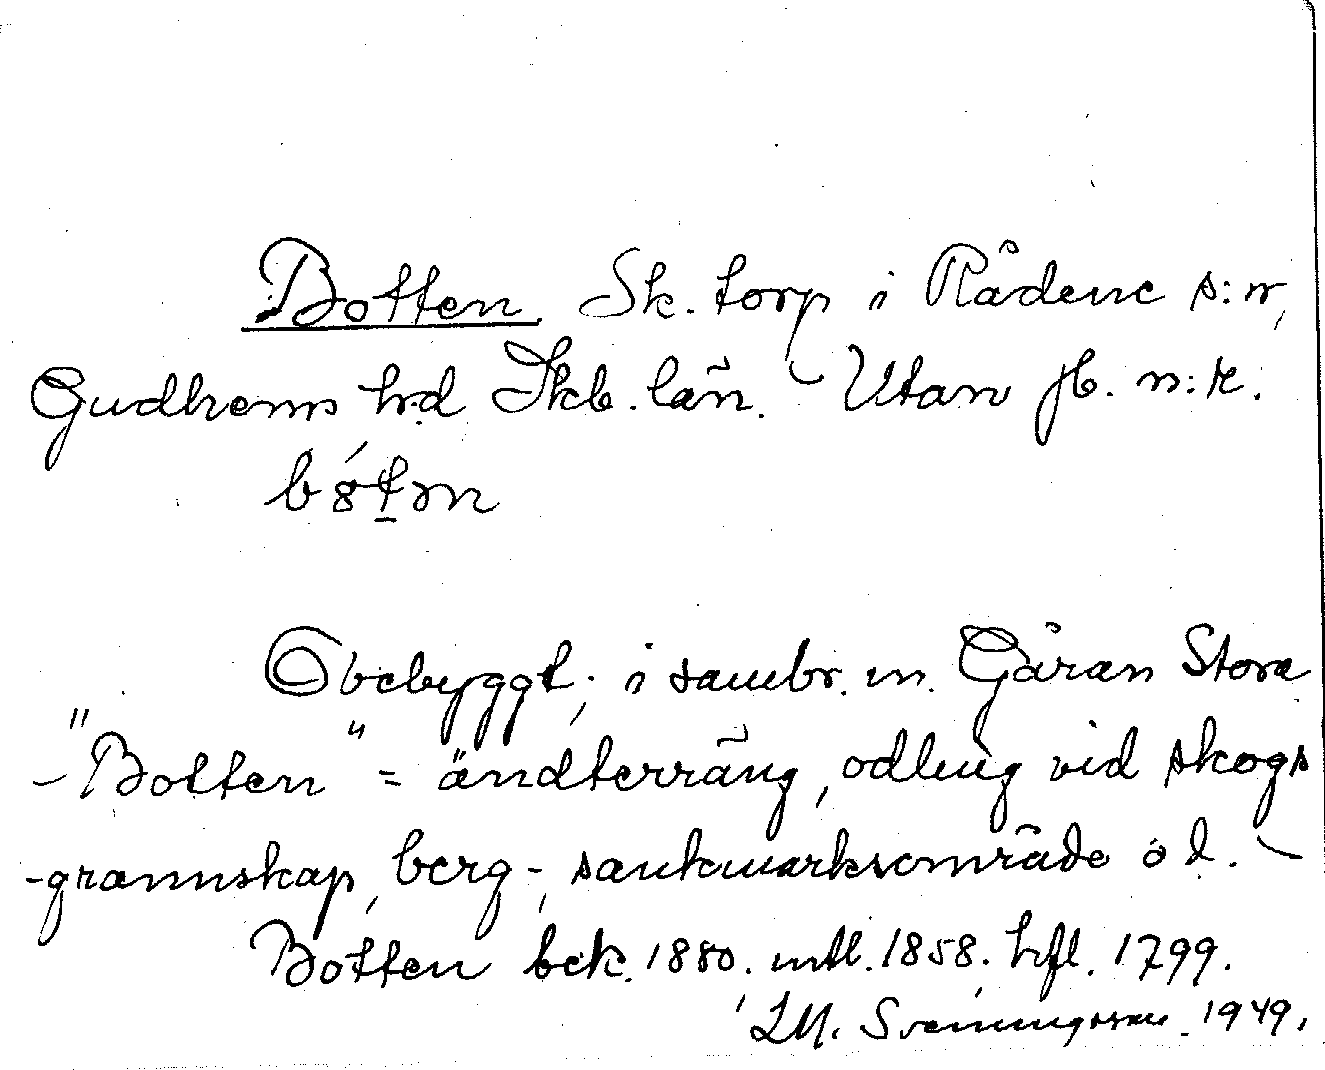 Botten. Sk. torp i Rådene s:n,
Gudhems hd Skb. län. – Utan jb. n:r.
b8́t̠ən
Obebyggt, i sambr. m. Gåran Stora
– "Botten" = ändterräng, odling vid skogs
-grannskap, berg-, sankmarksområde o d. –
Botten bek. 1880. mtl. 1858. hfl. 1799.
LM. Sveningsson. 1949.